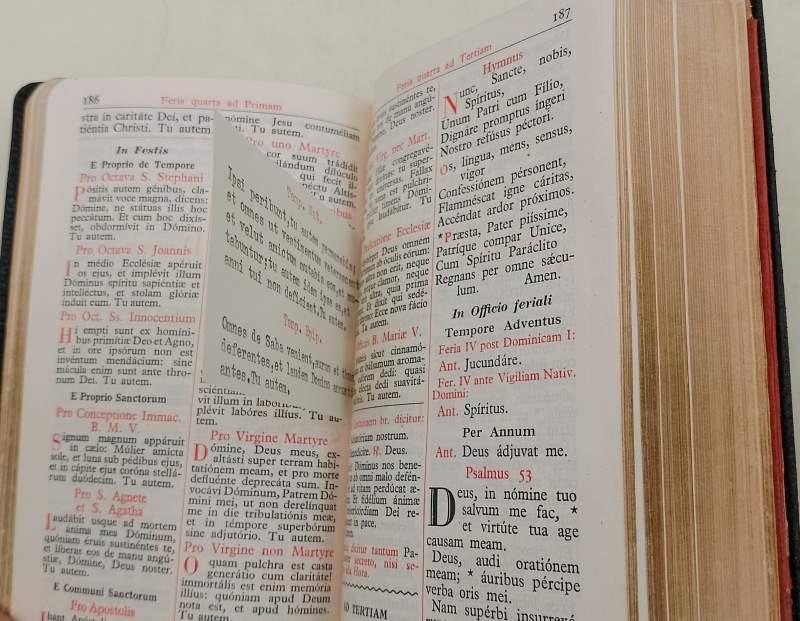 186
Feria quarta ad Primam
stra in caritáte Dei, et pa-
tiéntia Christi. Tu autem.
In Festis
E Proprio de Tempore
Pro Octava S. Stephani
Pósitis autem génibus, cla-
mávit voce magna, dicens:
Dómine, ne státuas illis hoc
peccátum. Et cum hoc dixís-
set, obdormívit in Dómino.
Tu autem.
Pro Octava S. Joannis
In médio Ecclésiæ apéruit
os ejus, et implévit illum
Dóminus spíritu sapiéntiæ et
intelléctus, et stolam glóriæ
índuit eum. Tu autem.
Pro Oct. Ss. Innocentium
Hi empti sunt ex homíni-
bus primítiæ Deo et Agno,
et in ore ipsórum non est
invéntum mendácium: sine
mácula enim sunt ante thro-
num Dei. Tu autem.
E Proprio Sanctorum
Pro Conceptione Immac.
B. M. V.
Signum magnum appáruit
in cælo: Múlier amícta
sole, et luna sub pédibus ejus,
et in cápite ejus coróna stellá-
rum duódecim. Tu autem.
Pro S. Agnete
et S. Agatha
Laudábit usque ad mortem
ánima mea Dóminum,
quóniam éruis sustinéntes te,
et líberas eos de manu angú-
stiæ, Dómine, Deus noster.
Tu autem.
E Communi Sanctorum
Pro Apostolis
nómine Jesu contuméliam
Tu autem.
Pro uno Martyre
cor suum trádidit
vigilándum dilúculo
qui fecit il-
Tu autem.
Temp. Nat.
Ipsi peribunt, tu autem permanebis,
et omnes ut vestimentum veterascent,
et velut amictum mutabis eos, et mu-
tabuntur: tu autem idem ipse es, et
anni tui non deficient. Tu autem.
Temp. Epiph.
Omnes de Saba venient, aurum et thus
deferentes, et laudem Domino annunti-
antes. Tu autem.
vit illum in
plévit labóres illíus. Tu au-
tem.
Pro Virgine Martyre
Dómine, Deus meus, ex-
altásti super terram habi-
tatiónem meam, et pro morte
defluénte deprecáta sum. In-
vocávi Dóminum, Patrem Dó-
mini mei, ut non derelínquat
me in die tribulatiónis meæ,
et in témpore superbórum
sine adjutório. Tu autem.
Pro Virgine non Martyre
O quam pulchra est casta
generátio cum claritáte!
immortális est enim memória
illíus: quóniam apud Deum
nota est, et apud hómines.
Tu autem.
Feria quarta ad Tertiam
187
sustinéntes te,
de manu angú-
Deus noster.
nec Mart.
congregavé-
tu super-
univérsas. Fallax
vana est pulchri-
timens Dómi-
laudábitur. Tu
Dedicatione Ecclesiæ
Deus omnem
ab óculis eórum:
non erit, neque
clamor, neque
ultra, quia prima
Et dixit qui sedé-
Ecce nova fácio
Tu autem.
B. Mariæ V.
sicut cinnamó-
bálsamum aroma-
dedi: quasi
elécta dedi suavitá-
Tu autem.
br. dicitur:
adjutórium nostrum.
R. Deus.
Dóminus nos bene-
ab omni malo defén-
ad vitam perdúcat æ-
Et fidélium ánimæ
misericórdiam Dei re-
in pace.
dicitur tantum Pa-
secreto, nisi se-
Hora.
AD TERTIAM
Hymnus
Nunc, Sancte, nobis,
Spíritus,
Unum Patri cum Fílio,
Dignáre promptus íngeri
Nostro refúsus péctori.
Os, lingua, mens, sensus,
vigor
Confessiónem pérsonent,
Flamméscat igne cáritas,
Accéndat ardor próximos.
*Præsta, Pater piíssime,
Patríque compar Unice,
Cum Spíritu Paráclito
Regnans per omne sǽcu-
lum. Amen.
In Officio feriali
Tempore Adventus
Feria IV post Dominicam I:
Ant. Jucundáre.
Fer. IV ante Vigiliam Nativ.
Domini:
Ant. Spíritus.
Per Annum
Ant. Deus ádjuvat me.
Psalmus 53
Deus, in nómine tuo
salvum me fac, *
et virtúte tua age
causam meam.
Deus, audi oratiónem
meam; * áuribus pércipe
verba oris mei.
Nam supérbi insurrexé-